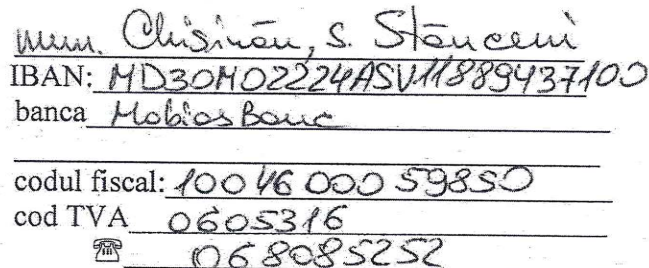 mun. Chișinău, s. Stăuceni
IBAN: MD30MO2224ASV11889437100
banca Mobias Banc
codul fiscal: 1004600059850
cod TVA 0605316
☎ 068085252